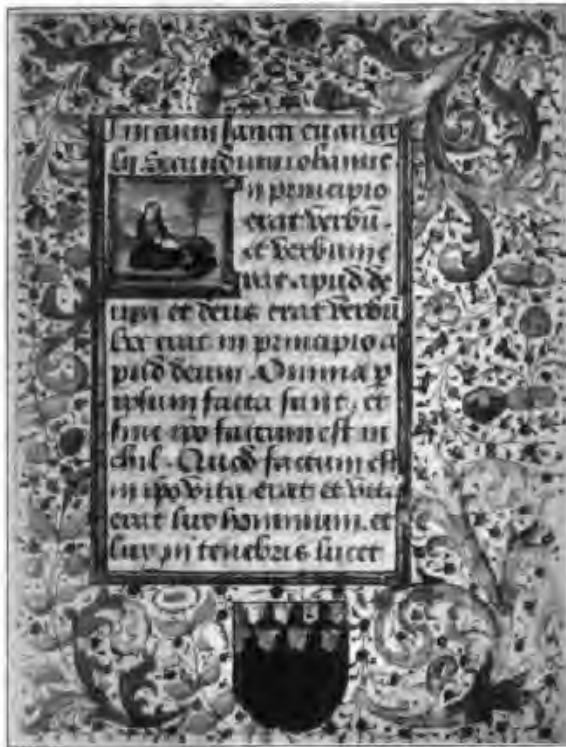 Inicium sancti euange
lii Secundum iohannē
n principio
erat verbū.
et verbum e
rat apud de
um et deus erat verbū
hec erat in principio a
pud deum. Omnia p
ipsum facta sunt. et
sine ipo factum est ni
chil. Quod factum est
in ipo vita erat et vita
erat lux hominum. et
lux in tenebris lucet